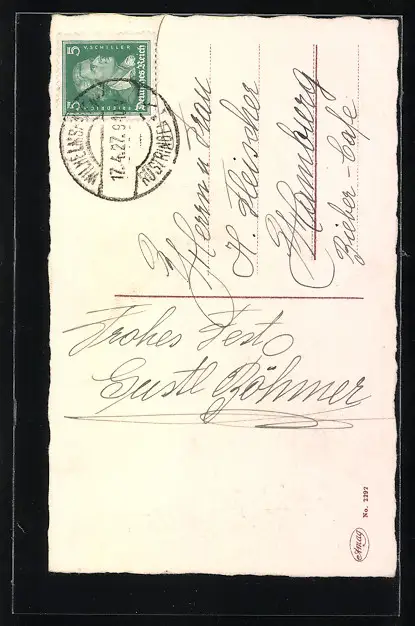 5 V. SCHILLER 5
Deutsches Reich
WILHELMSH
17.4.27.9
RÜSTRINGEN
Herrn u Frau
H. Fleischer
Hamburg
Zieher-Cafe
Frohes Fest
Gustl Böhmer
Amag
No. 2292